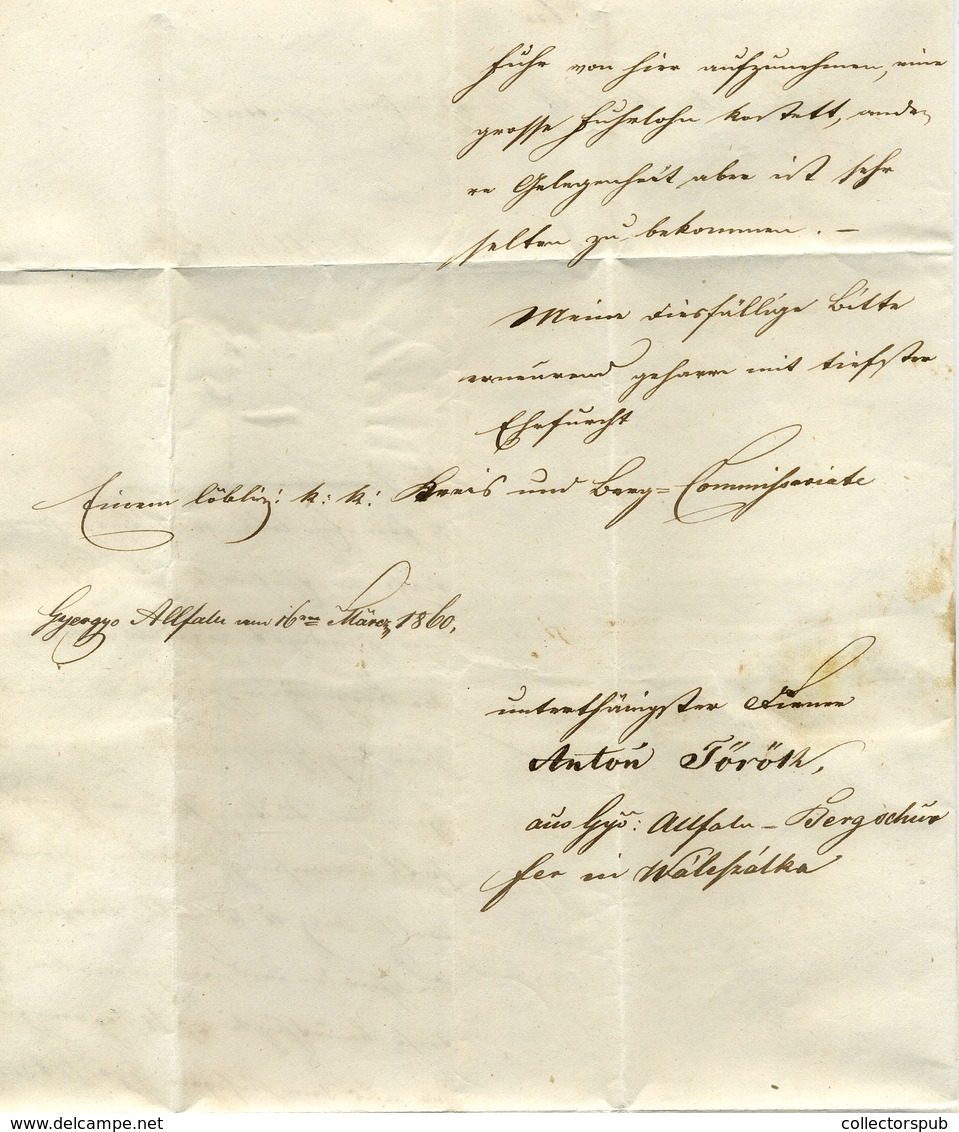 fuhr von hier aufzunehmen, eine
grosse Fuhrlohn kostett, ande-
re Gelegenheit aber ist sehr
selten zu bekommen. –
Meine diesfällige Bitte
erneurend geharre mit tiefster
Ehrfurcht
Einem löblig: k: k: Kreis und Berg= Commissariate
Gyergyo Allfalu am 16ten März 1860,
unterthänigster Diener
Anton Török,
aus Gyo: Allfalu – Bergschür
fer in Váleszálka
www.delcampe.net
collectorspub